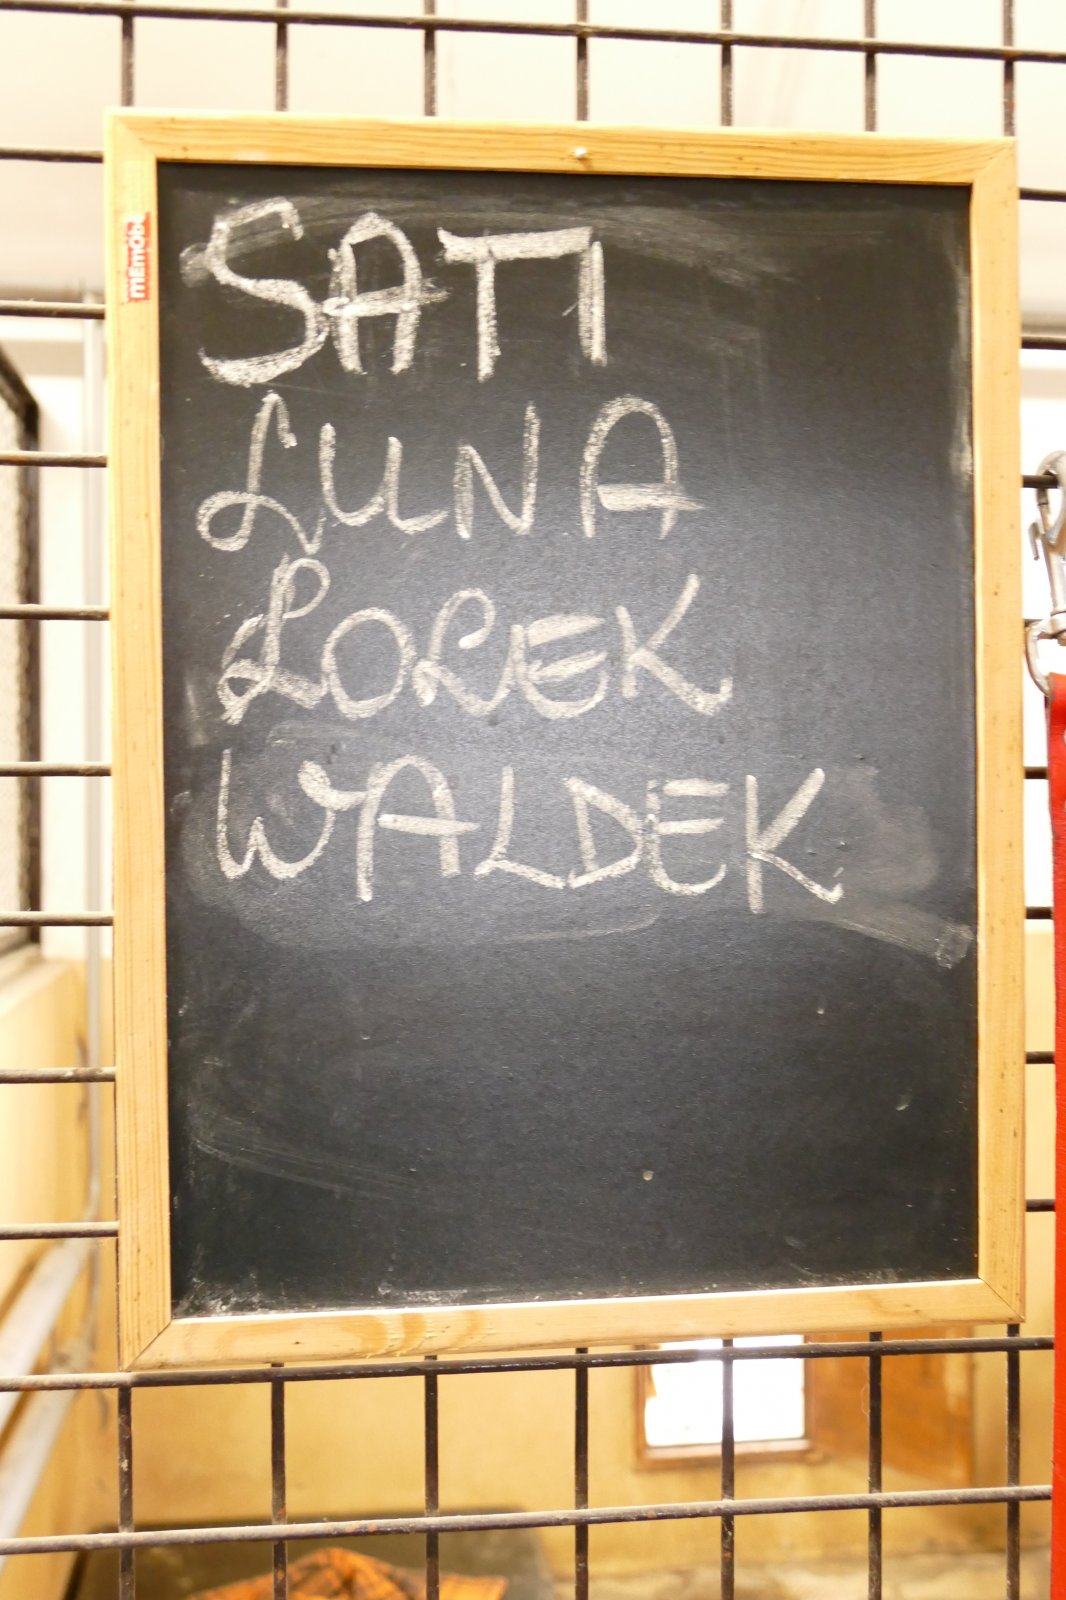 SATI
LUNA
LOLEK
WALDEK
mEmObe